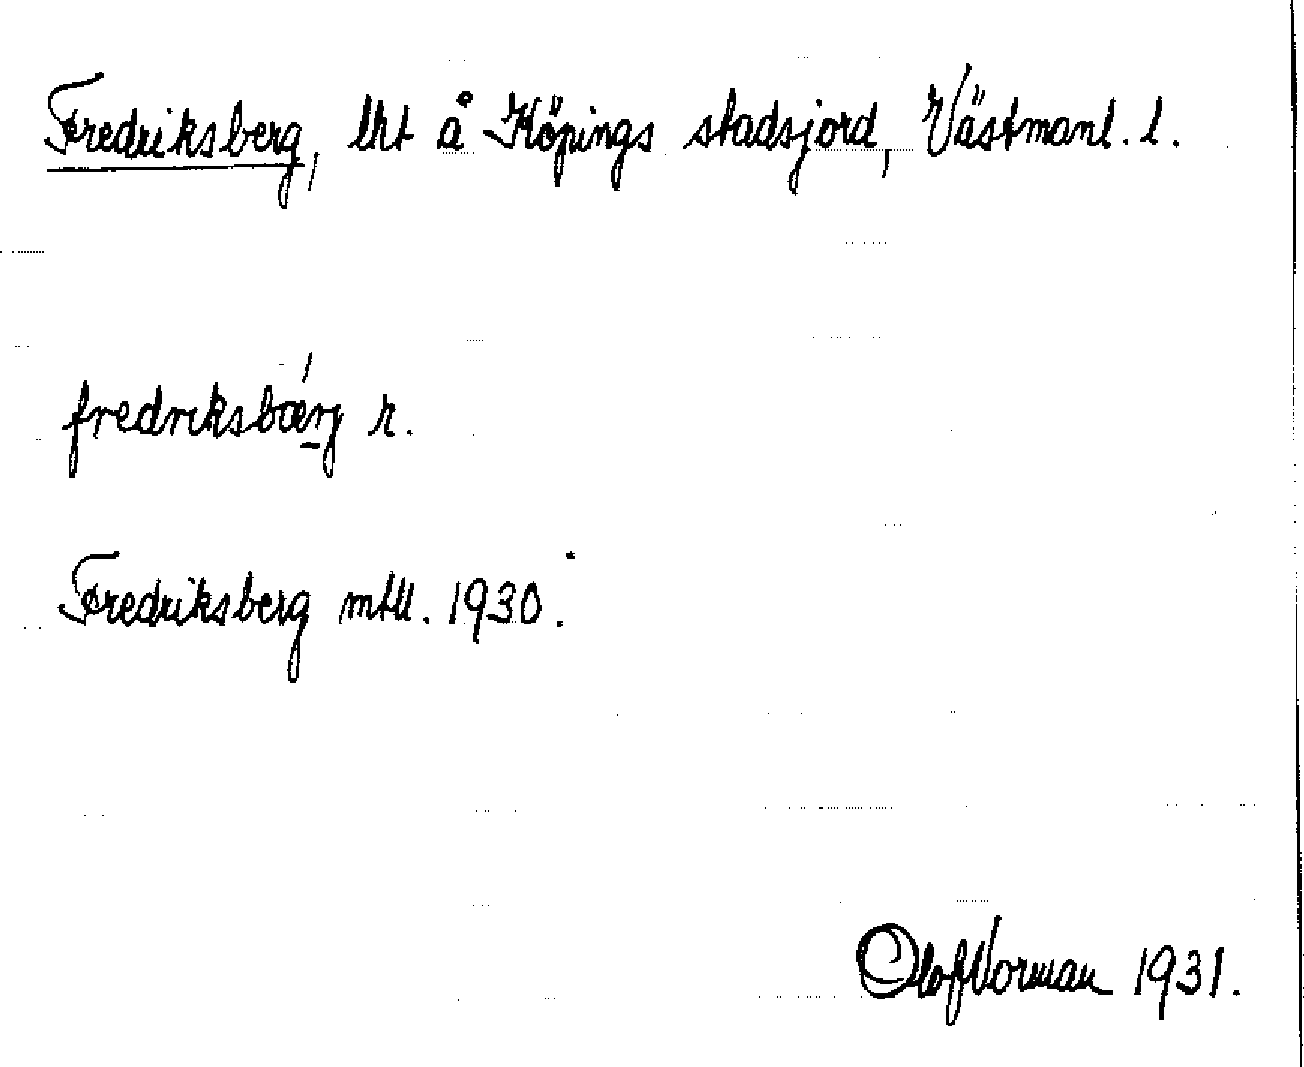 Fredriksberg, lht å Köpings stadsjord, Västmanl. l.
fredriksbærj r.
Fredriksberg mtl. 1930.
Olof Norman 1931.